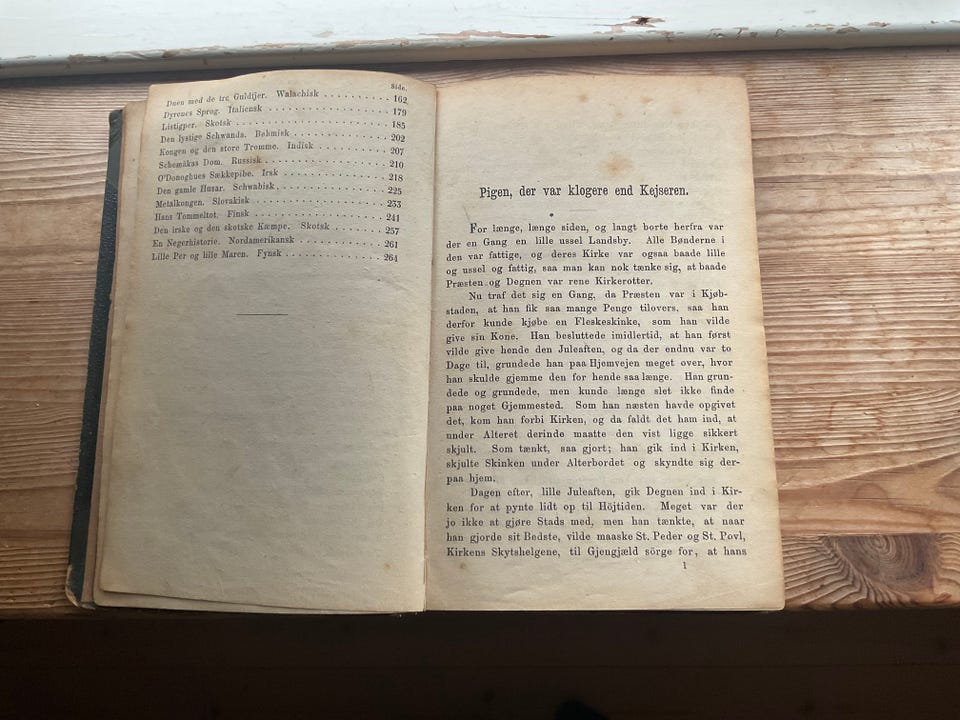 Side.
Duen med de tre Guldfjer. Walachisk . . . . . . . . . . 162
Dyrenes Sprog. Italiensk . . . . . . . . . . . . . . . . 179
Listigper. Skotsk . . . . . . . . . . . . . . . . . . . 185
Den lystige Schwanda. Bøhmisk . . . . . . . . . . . . . 202
Kongen og den store Tromme. Indisk . . . . . . . . . . 207
Schemäkas Dom. Russisk . . . . . . . . . . . . . . . . 210
O'Donoghues Sækkepibe. Irsk . . . . . . . . . . . . . . 218
Den gamle Husar. Schwabisk . . . . . . . . . . . . . . 225
Metalkongen. Slovakisk . . . . . . . . . . . . . . . . 233
Hans Tommeltot. Finsk . . . . . . . . . . . . . . . . . 241
Den irske og den skotske Kæmpe. Skotsk . . . . . . . . 257
En Negerhistorie. Nordamerikansk . . . . . . . . . . . 261
Lille Per og lille Maren. Fynsk . . . . . . . . . . . . 264
Pigen, der var klogere end Kejseren.
For længe, længe siden, og langt borte herfra var
der en Gang en lille ussel Landsby. Alle Bønderne i
den var fattige, og deres Kirke var ogsaa baade lille
og ussel og fattig, saa man kan nok tænke sig, at baade
Præsten og Degnen var rene Kirkerotter.
Nu traf det sig en Gang, da Præsten var i Kjøb-
staden, at han fik saa mange Penge tilovers, saa han
derfor kunde kjøbe en Fleskeskinke, som han vilde
give sin Kone. Han besluttede imidlertid, at han først
vilde give hende den Juleaften, og da der endnu var to
Dage til, grundede han paa Hjemvejen meget over, hvor
han skulde gjemme den for hende saa længe. Han grun-
dede og grundede, men kunde længe slet ikke finde
paa noget Gjemmested. Som han næsten havde opgivet
det, kom han forbi Kirken, og da faldt det ham ind, at
under Alteret derinde maatte den vist ligge sikkert
skjult. Som tænkt, saa gjort; han gik ind i Kirken,
skjulte Skinken under Alterbordet og skyndte sig der-
paa hjem.
Dagen efter, lille Juleaften, gik Degnen ind i Kir-
ken for at pynte lidt op til Höjtiden. Meget var der
jo ikke at gjøre Stads med, men han tænkte, at naar
han gjorde sit Bedste, vilde maaske St. Peder og St. Povl,
Kirkens Skytshelgene, til Gjengjæld sörge for, at hans
1